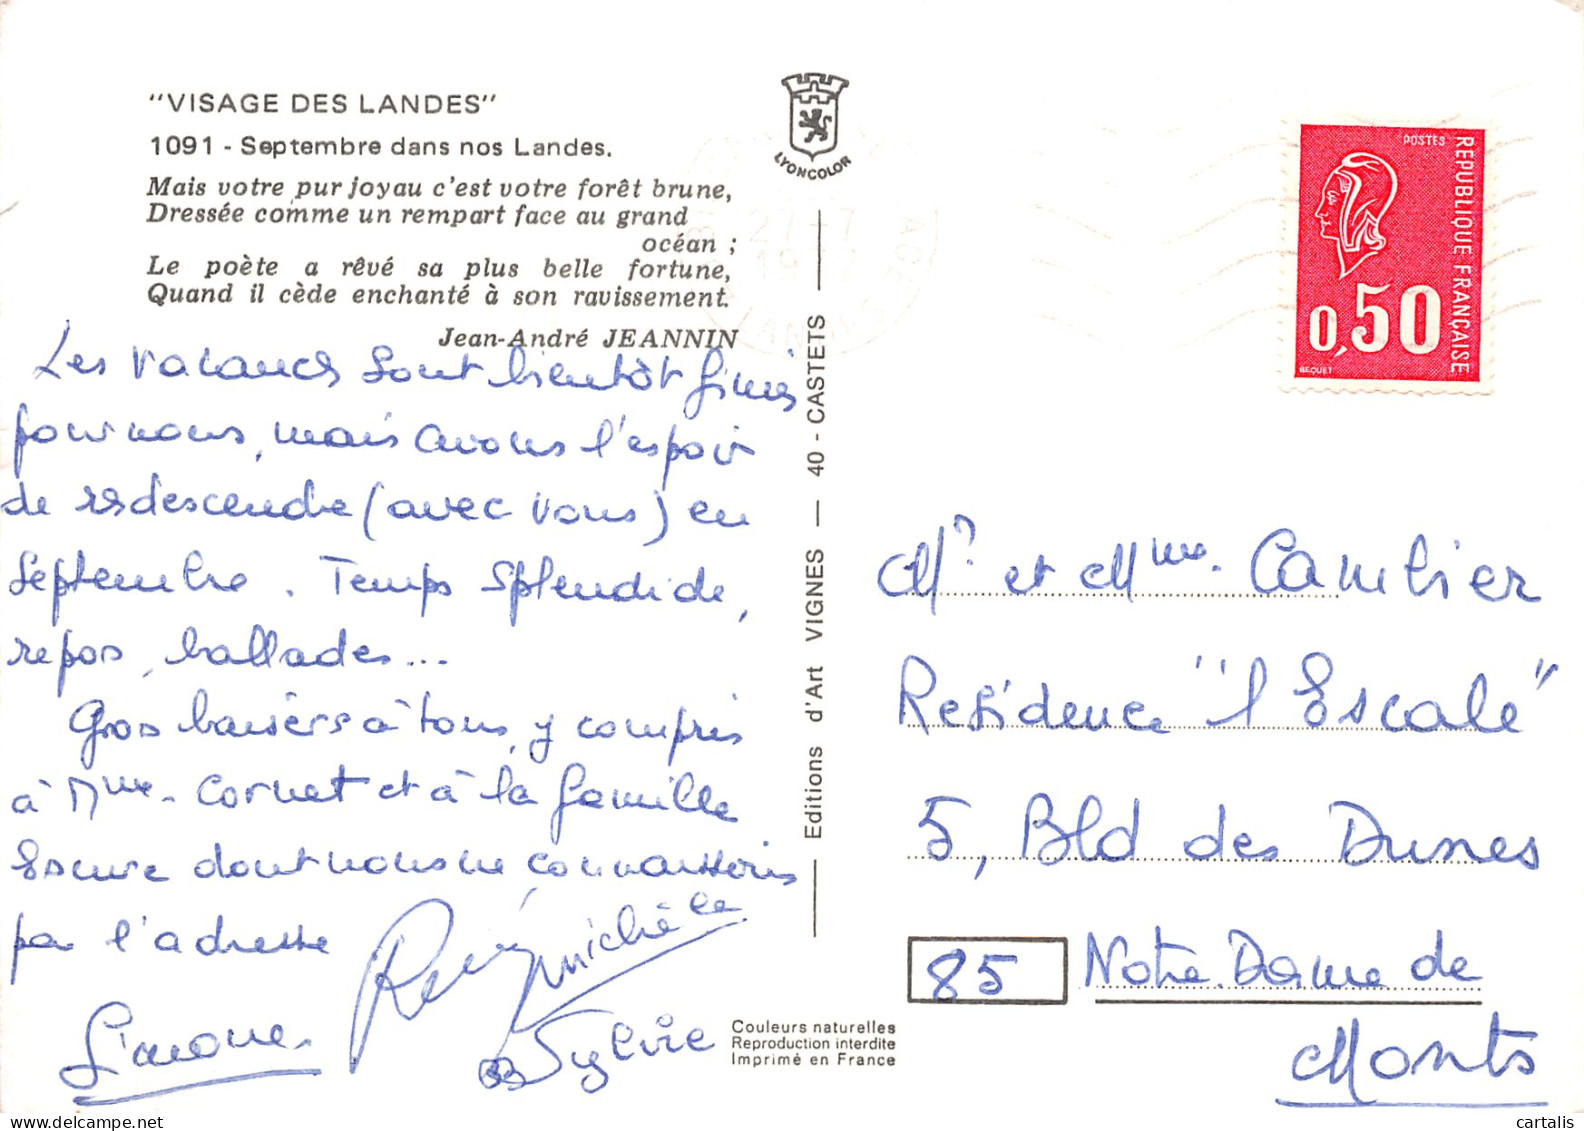 "VISAGE DES LANDES"
1091 - Septembre dans nos Landes.
Mais votre pur joyau c'est votre forêt brune,
Dressée comme un rempart face au grand
océan ;
Le poète a rêvé sa plus belle fortune,
Quand il cède enchanté à son ravissement.
Jean-André JEANNIN
Les vacances sont bientôt finies
pour nous, mais avons l'espoir
de redescendre (avec vous) en
Septembre. Temps splendide,
repos, ballades...
Gros baisers à tous, y compris
à Mme. Cornet et à la famille
dont nous ne connaissons
pas l'adresse
Simone. René Michèle
Sylvie
LYONCOLOR
Editions d'Art VIGNES — 40 - CASTETS
Couleurs naturelles
Reproduction interdite
Imprimé en France
27-7
POSTES
REPUBLIQUE FRANÇAISE
0,50
BEQUET
Mr et Mme. Cambier
Residence "l'Escale"
5, Bld des Dunes
85 Notre. Dame de
Monts
cartalis